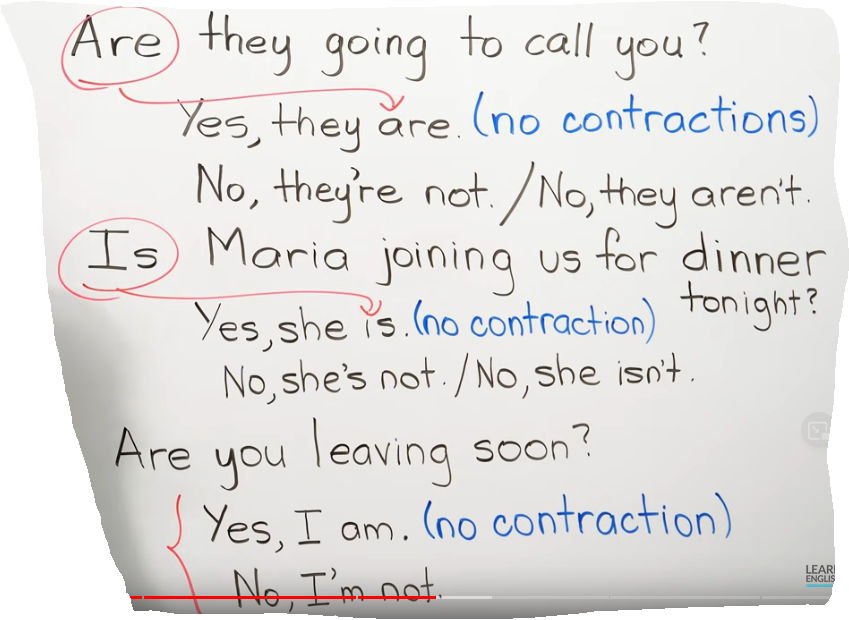 Are they going to call you?
Yes, they are. (no contractions)
No, they're not. / No, they aren't.
Is Maria joining us for dinner
tonight?
Yes, she is. (no contraction)
No, she's not. / No, she isn't.
Are you leaving soon?
Yes, I am. (no contraction)
No, I'm not.